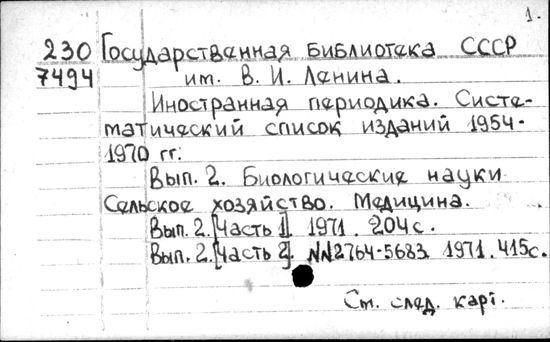 1.
230 Государственная библиотека СССР
7494 им. В. И. Ленина.
Иностранная периодика. Систе-
матический список изданий 1954-
1970 гг.:
Вып. 2. Биологические науки
Сельское хозяйство. Медицина.
Вып. 2. [Часть 1]. 1971. 204 с.
Вып. 2. [Часть 2]. NN2764-5683. 1971. 415 с.
См. след. карт.